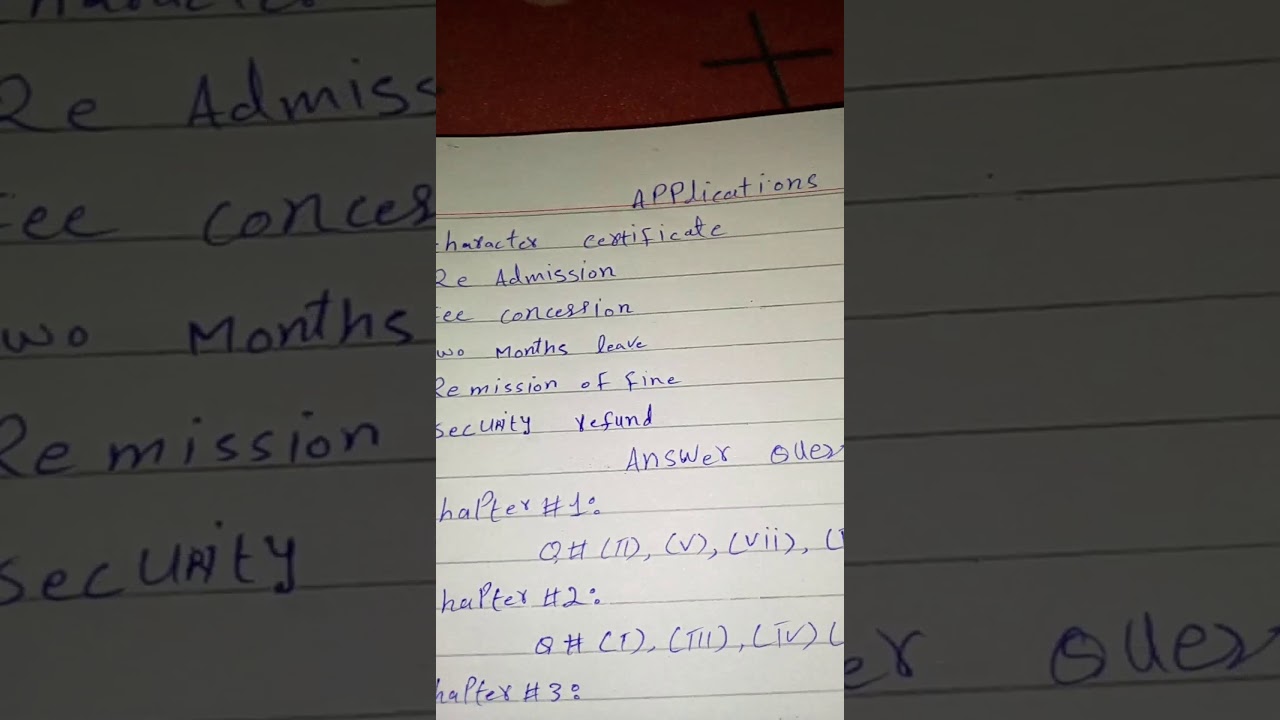 Applications
haracter certificate
Re Admission
ee concession
wo Months leave
Remission of fine
security refund
Answer Ques
hapter #1:
Q# (II), (V), (Vii), (
hapter #2:
Q# (I), (III), (IV) (
hapter #3: